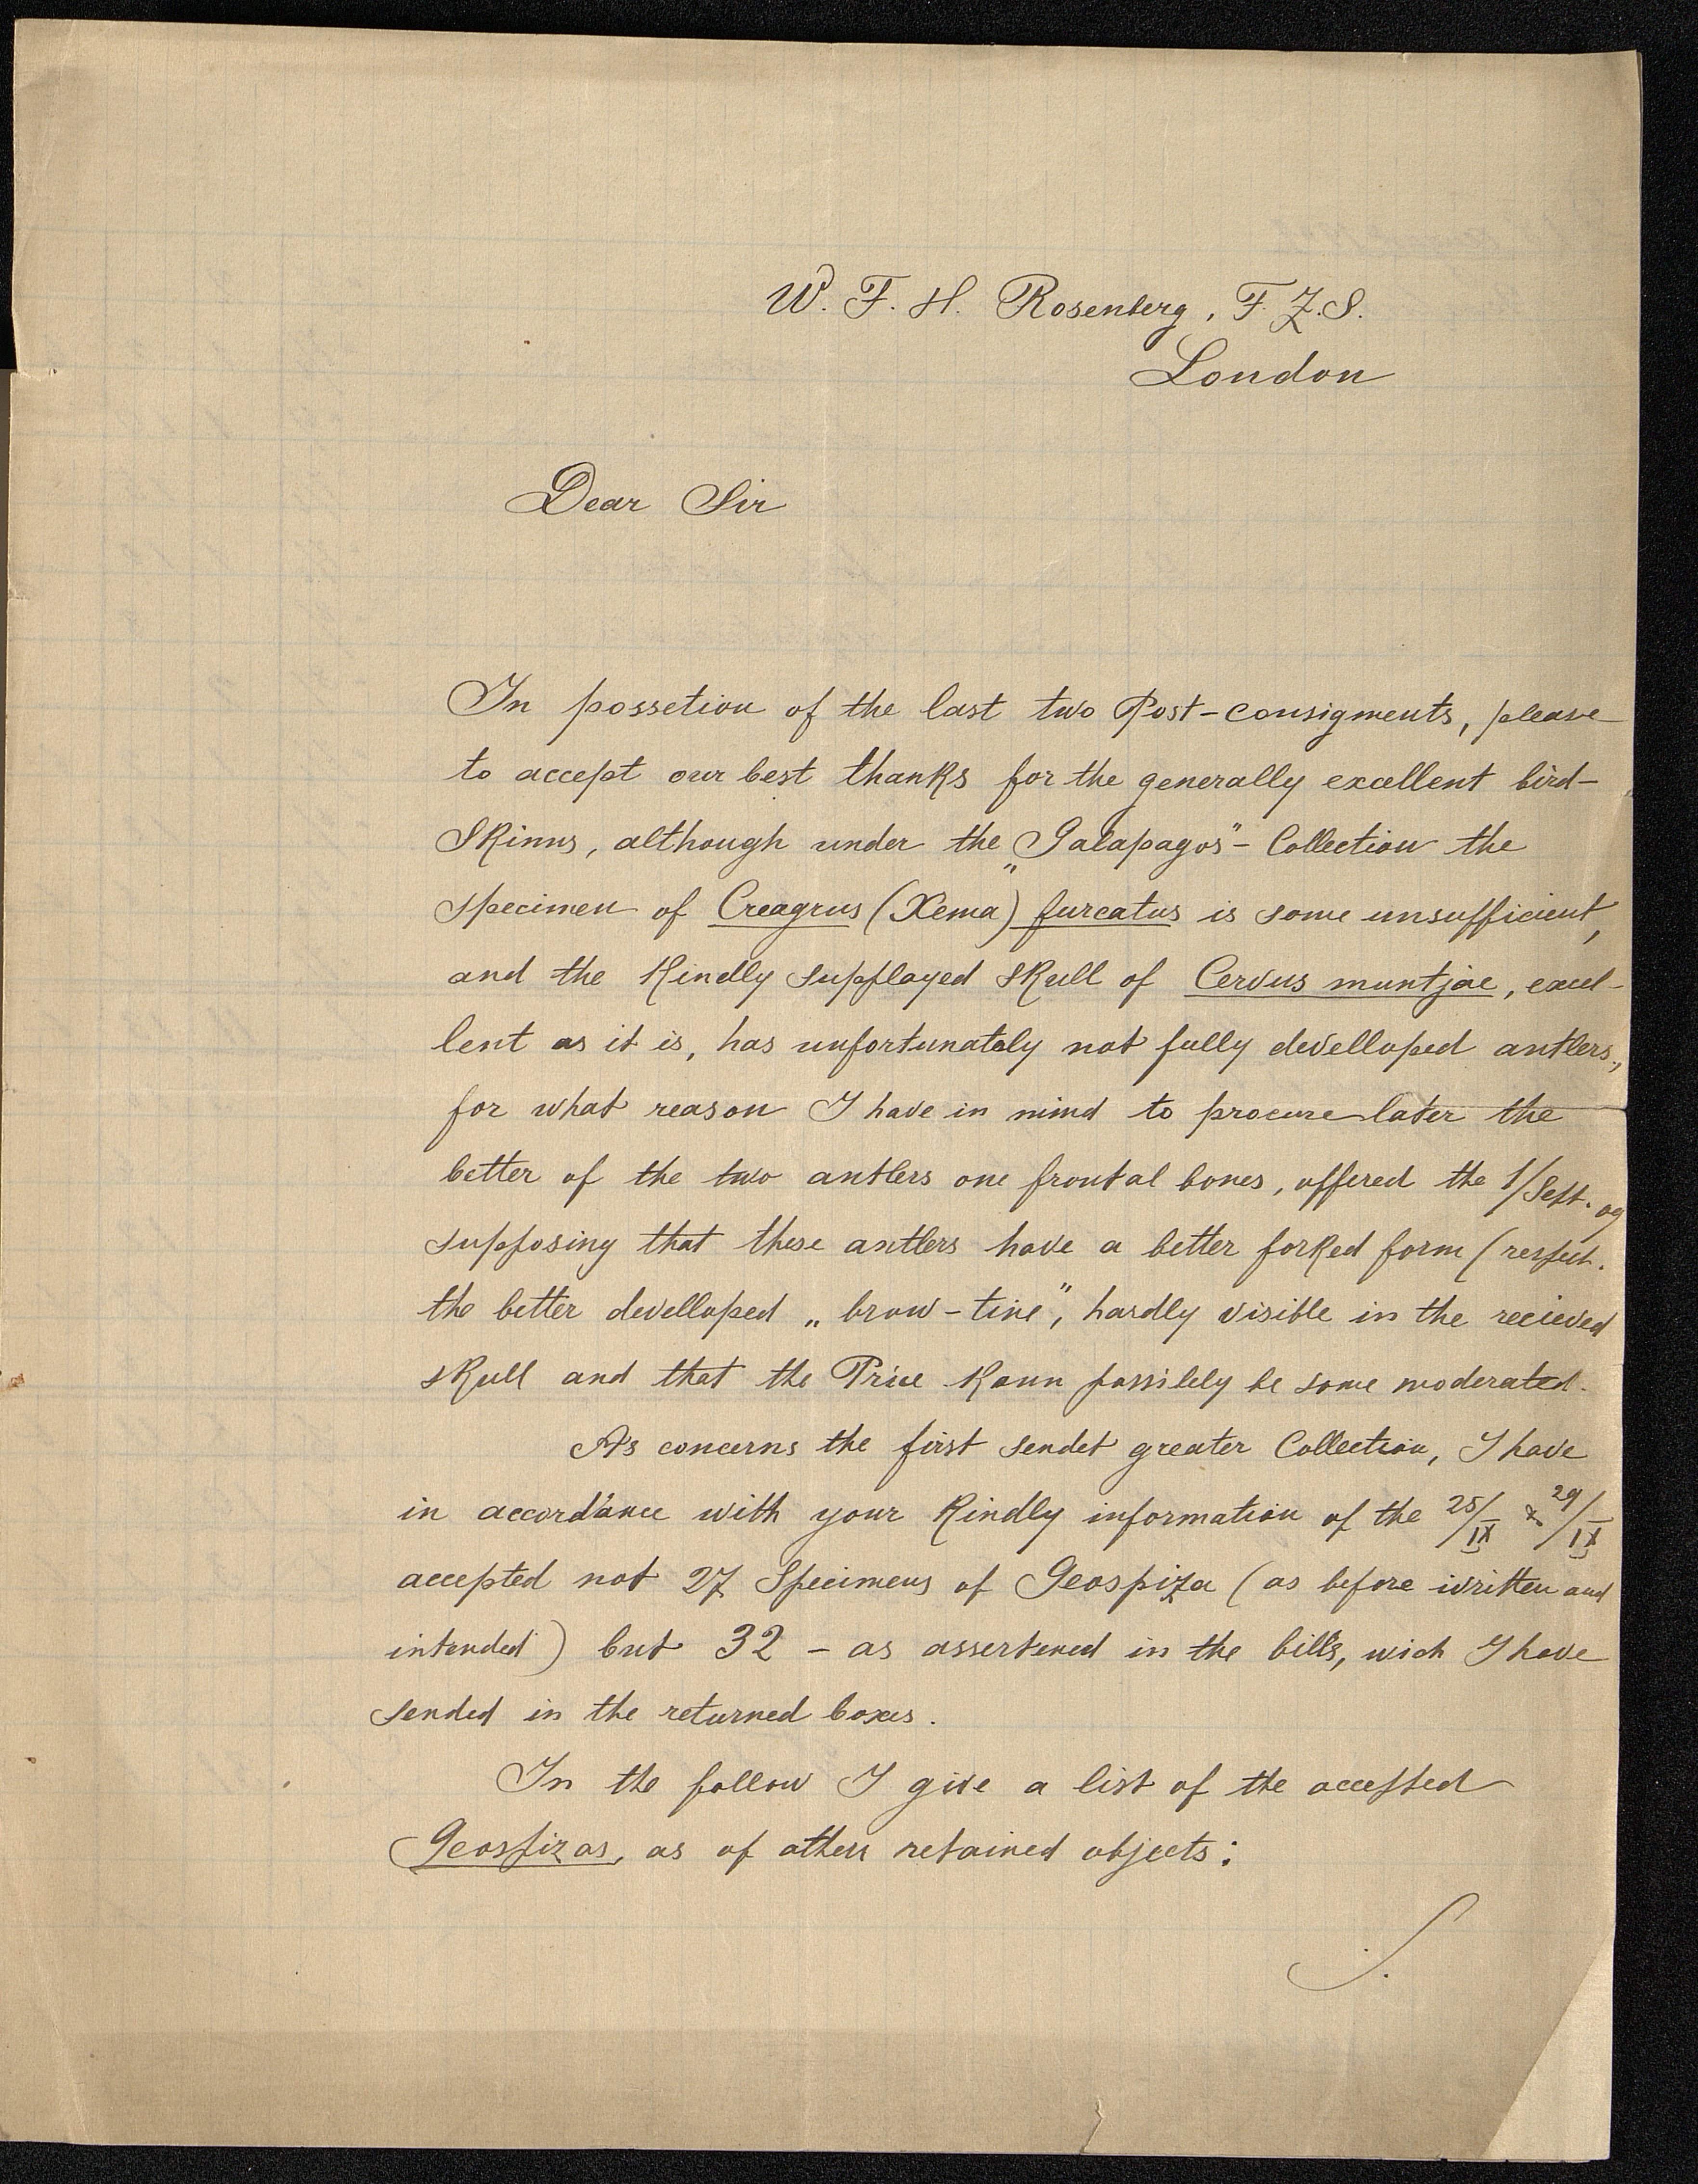 W. F. H. Rosenberg, F. Z. S.
London
Dear Sir
In possetion of the last two Post-consigments, please
to accept our best thanks for the generally excellent bird-
Skinns, although under the „Galapagos"- Collection the
specimen of Creagrus (Xema) furcatus is some unsufficient,
and the Kindly supplayed skull of Cervus muntjac, excel-
lent as it is, has unfortunately not fully develloped antlers,
for what reason I have in mind to procure later the
better of the two antlers one frontal bones, offered the 1/Sept. 09
supposing that these antlers have a better forked form (respect.
the better develloped „brow-tine", hardly visible in the recieved
skull and that the Price kann possibely be some moderated.
As concerns the first sendet greater Collection, I have
in accordance with your Kindly information of the 25/IX & 29/IX
accepted not 27 Specimens of Geospiza (as before written and
intended) but 32 - as assertened in the bills, wich I have
sended in the returned boxes.
In the follow I give a list of the accepted
Geospizas, as of others retained objects: